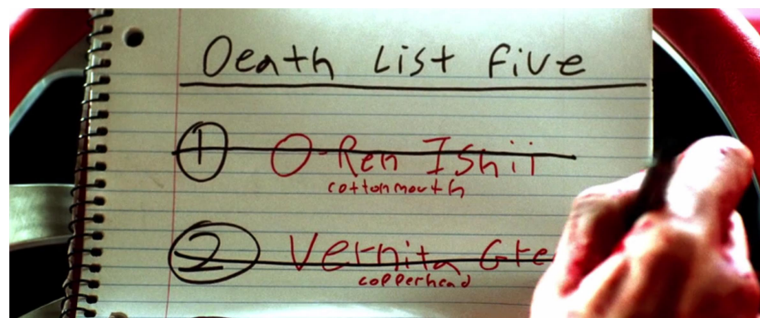 Death List Five
1 O-Ren Ishii
cottonmouth
2 Vernita Gre
copperhead